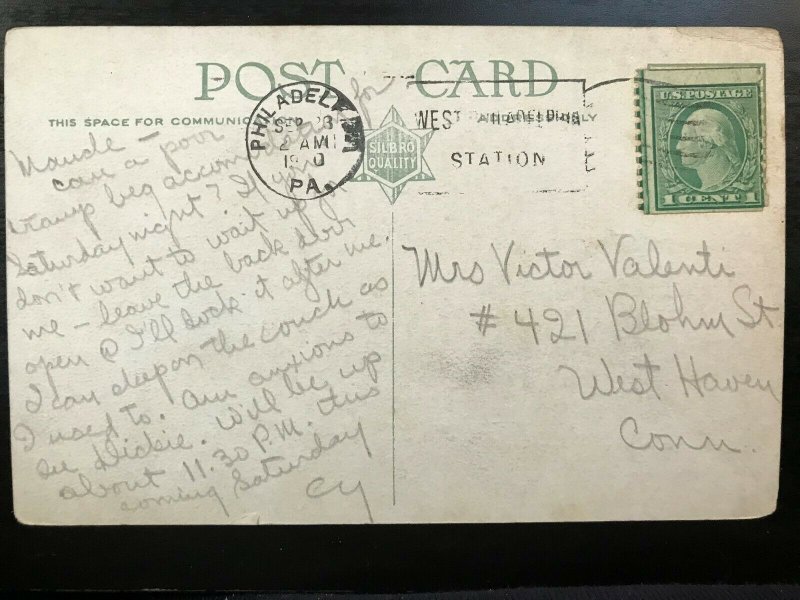 POST CARD
THIS SPACE FOR COMMUNIC
ADDRESS ONLY
PHILADELPHIA
SEP 23
2 AM
PA.
WEST PHILADELPHIA
STATION
SILBRO
QUALITY
U.S. POSTAGE
1 CENT 1
Maude —
can a poor
tramp beg accomodation for
Saturday night? If you
don't want to wait up for
me — leave the back door
open & I'll lock it after me.
I can sleep on the couch as
I used to. Am anxious to
see Dickie. Will be up
about 11.30 P.M. this
coming Saturday
Cy
Mrs Victor Valenti
# 421 Blohm St
West Haven
Conn.